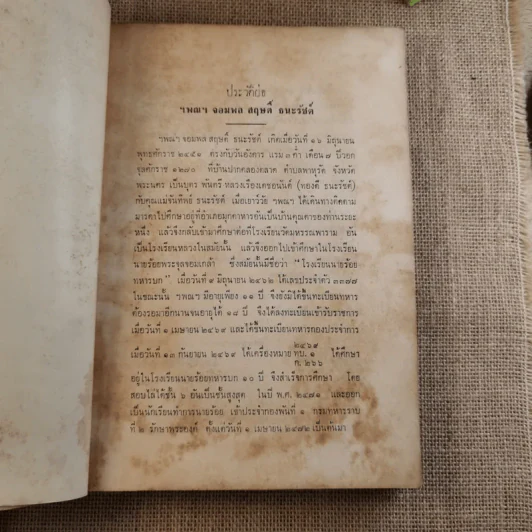 ประวัติย่อ
ฯพณฯ จอมพล สฤษดิ์ ธนะรัชต์
ฯพณฯ จอมพล สฤษดิ์ ธนะรัชต์ เกิดเมื่อวันที่ ๑๖ มิถุนายน
พุทธศักราช ๒๔๕๑ ตรงกับวันอังคาร แรม ๓ ค่ำ เดือน ๗ ปีวอก
จุลศักราช ๑๒๗๐ ที่บ้านปากคลองตลาด ตำบลพาหุรัด จังหวัด
พระนคร เป็นบุตร พันตรี หลวงเรืองเดชอนันต์ (ทองดี ธนะรัชต์)
กับคุณแม่จันทิพย์ ธนะรัชต์ เมื่อเยาว์วัย ฯพณฯ ได้เดินทางติดตาม
มารดาไปศึกษาอยู่ที่อำเภอมุกดาหารอันเป็นบ้านคุณตาของท่านระยะ
หนึ่ง แล้วจึงกลับเข้ามาศึกษาต่อที่โรงเรียนวัดมหรรณพาราม อัน
เป็นโรงเรียนหลวงในสมัยนั้น แล้วจึงออกไปเข้าศึกษาในโรงเรียน
นายร้อยพระจุลจอมเกล้า ซึ่งสมัยนั้นมีชื่อว่า "โรงเรียนนายร้อย
ทหารบก" เมื่อวันที่ ๑ มิถุนายน ๒๔๖๒ ได้เลขประจำตัว ๓๓๗๗
ในขณะนั้น ฯพณฯ มีอายุเพียง ๑๑ ปี จึงยังมิได้ขึ้นทะเบียนทหาร
ต้องรอมาอีกนานจนอายุได้ ๑๘ ปี จึงได้ลงทะเบียนเข้ารับราชการ
เมื่อวันที่ ๑ เมษายน ๒๔๖๙ และได้ขึ้นทะเบียนทหารกองประจำการ
เมื่อวันที่ ๑๓ กันยายน ๒๔๖๙ ได้เครื่องหมาย ๒๔๖๙ ทบ. ๑ ก. ๒๖๖ ได้ศึกษา
อยู่ในโรงเรียนนายร้อยทหารบก ๑๐ ปี จึงสำเร็จการศึกษา โดย
สอบไล่ได้ชั้น ๖ อันเป็นชั้นสูงสุด ในปี พ.ศ. ๒๔๗๑ และออก
เป็นนักเรียนทำการนายร้อย เข้าประจำกองพันที่ ๑ กรมทหารราบ
ที่ ๒ รักษาพระองค์ ตั้งแต่วันที่ ๑ เมษายน ๒๔๗๒ เป็นต้นมา